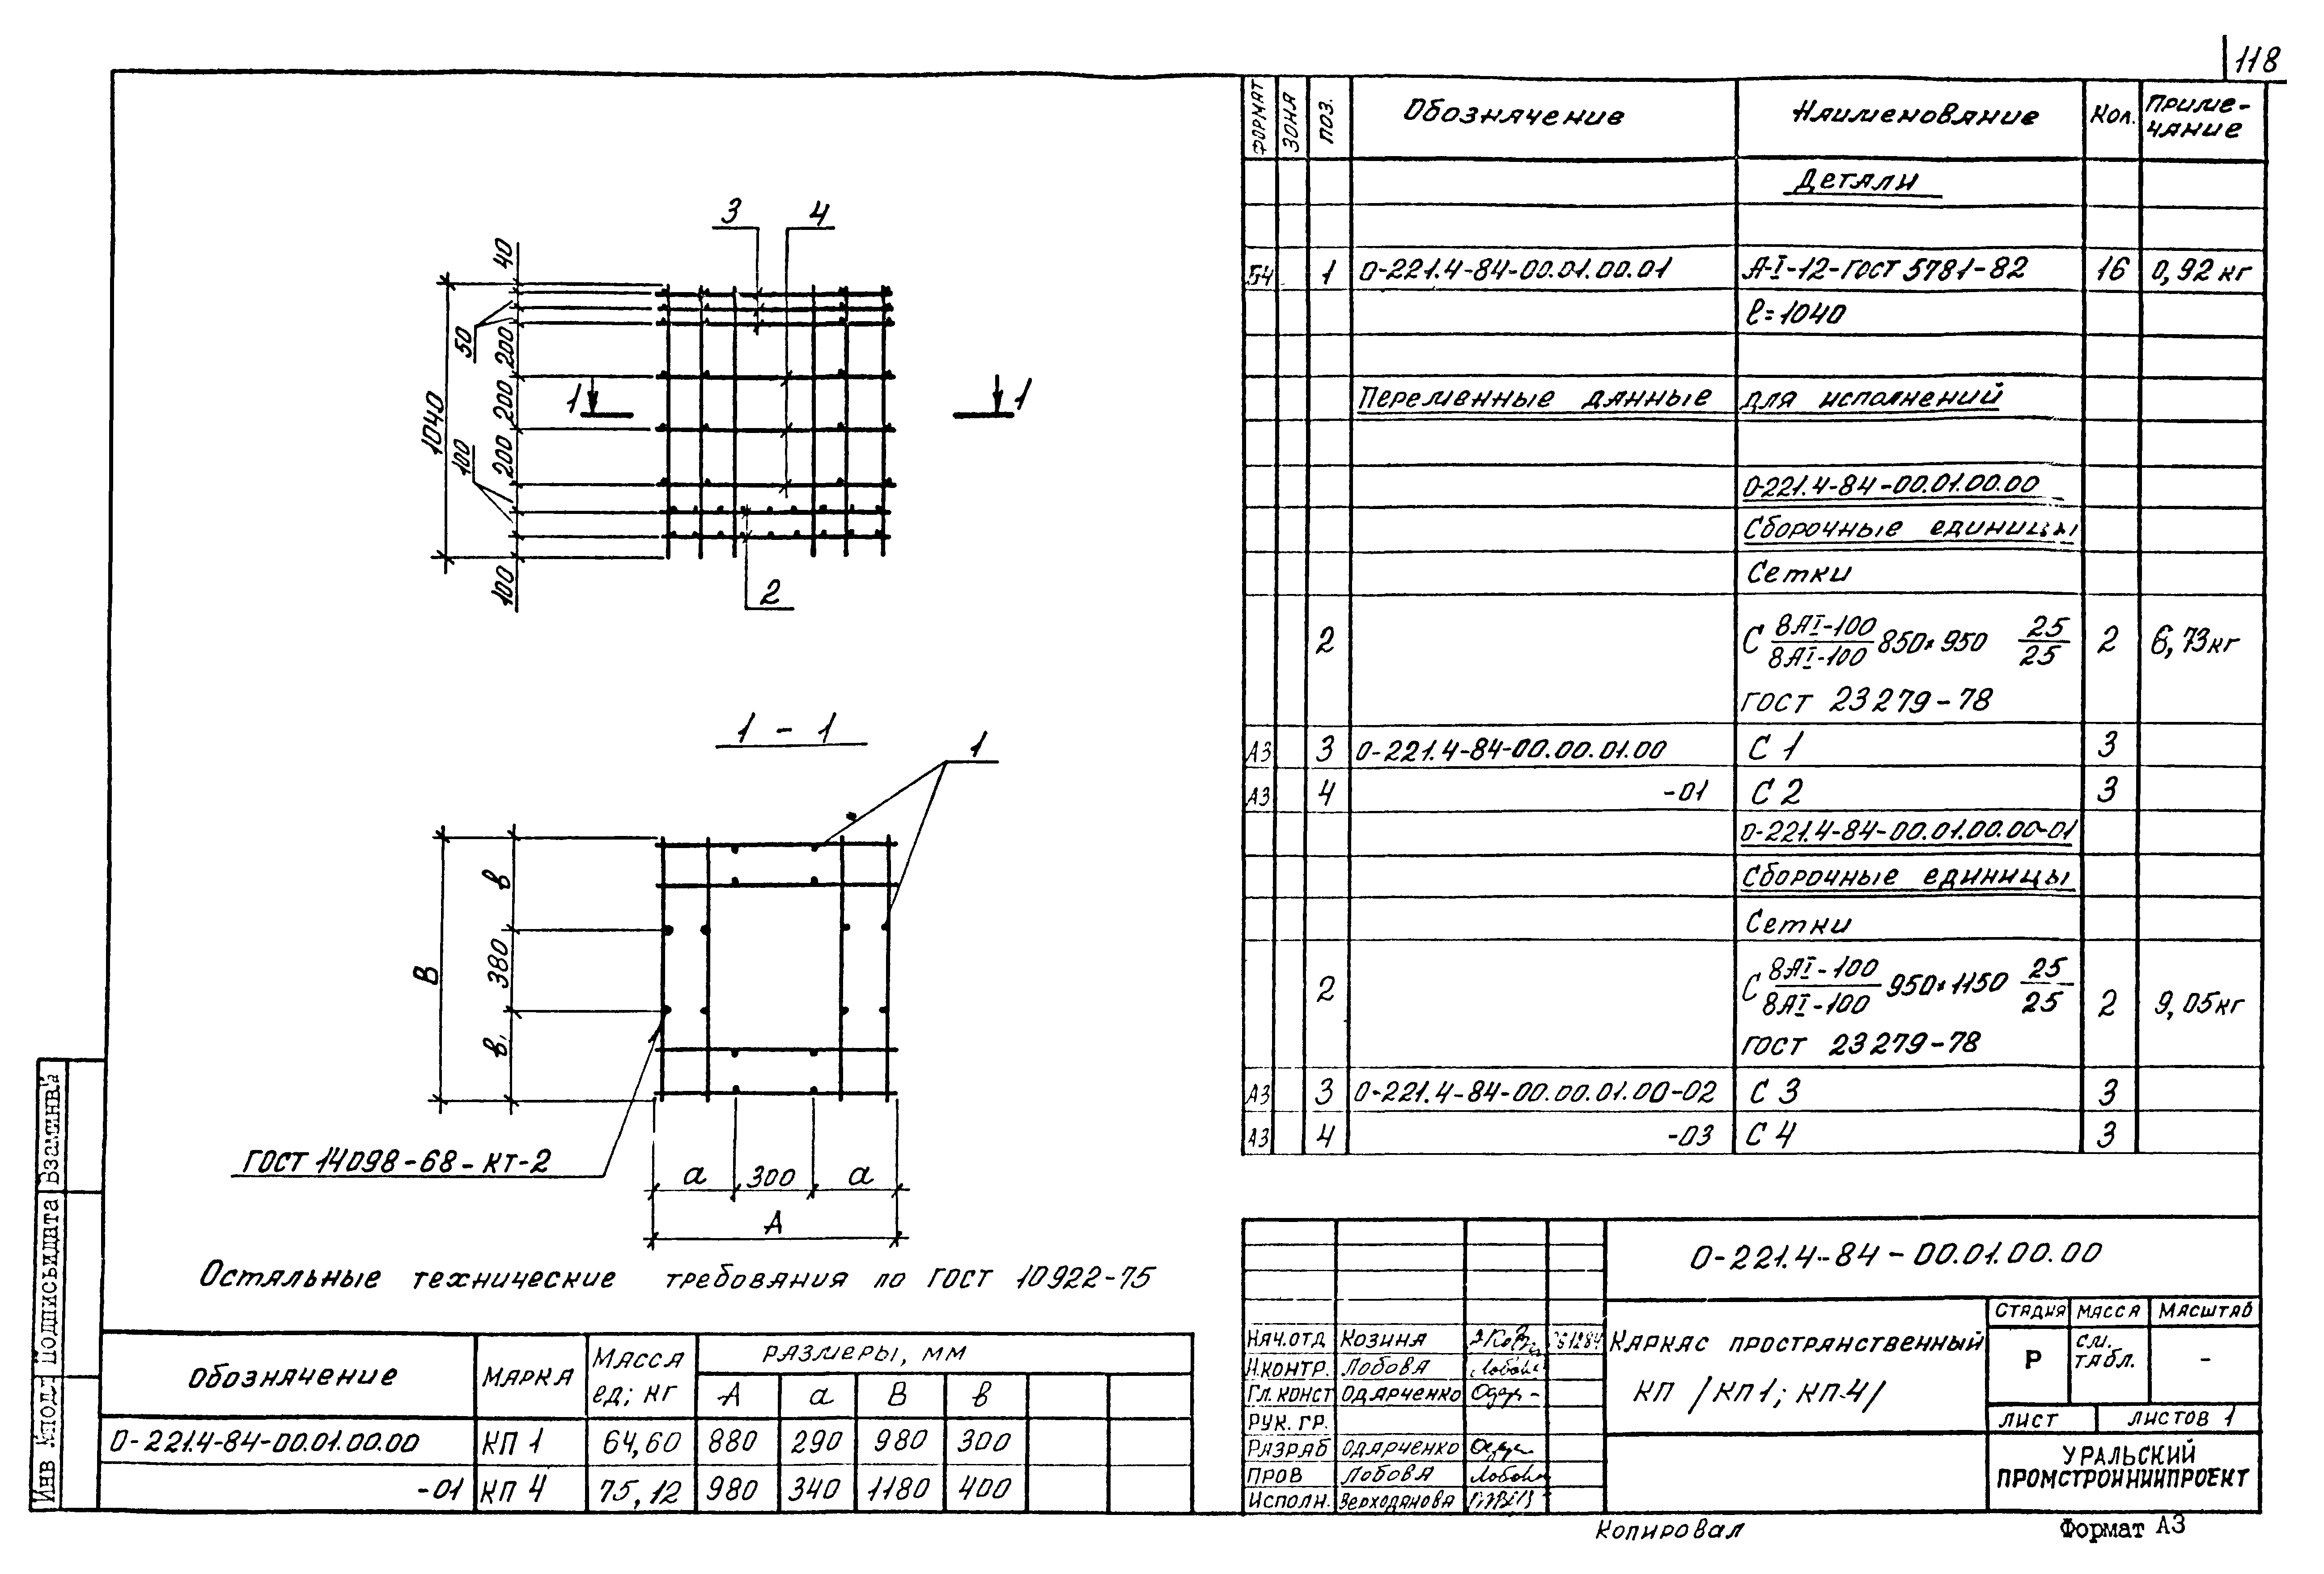 118
ФОРМАТ ЗОНА ПОЗ. Обозначение Наименование Кол. Приме-чание
Детали
Б4 1 0-221.4-84-00.01.00.01 А-I-12-ГОСТ 5781-82 16 0,92 кг
ℓ=1040
Переменные данные для исполнений
0-221.4-84-00.01.00.00
Сборочные единицы
Сетки
2 С 8АI-100/8АI-100 850×950 25/25 2 6,73кг
ГОСТ 23279-78
А3 3 0-221.4-84-00.00.01.00 С 1 3
А3 4 -01 С 2 3
0-221.4-84-00.01.00.00-01
Сборочные единицы
Сетки
2 С 8АI-100/8АI-100 950×1150 25/25 2 9,05кг
ГОСТ 23279-78
А3 3 0-221.4-84-00.00.01.00-02 С 3 3
А3 4 -03 С 4 3
3 4
40
50
200
200
200
1040
100
100
1 1
2
1 - 1
1
В
в
380
в
ГОСТ 14098-68-КТ-2
а 300 а
А
Остальные технические требования по ГОСТ 10922-75
Обозначение МАРКА МАССА ед; кг РАЗМЕРЫ, ММ
А а В в
0-221.4-84-00.01.00.00 КП 1 64,60 880 290 980 300
-01 КП 4 75,12 980 340 1180 400
0-221.4-84-00.01.00.00
НАЧ.ОТД КОЗИНА
Н.КОНТР. ЛОБОВА
ГЛ.КОНСТ ОДАРЧЕНКО
РУК. ГР.
РАЗРАБ ОДАРЧЕНКО
ПРОВ ЛОБОВА
ИСПОЛН. ВЕРХОДАНОВА
КАРКАС ПРОСТРАНСТВЕННЫЙ
КП /КП1; КП4/
СТАДИЯ МАССА МАСШТАБ
Р СМ. ТАБЛ. -
ЛИСТ ЛИСТОВ 1
УРАЛЬСКИЙ
ПРОМСТРОЙНИИПРОЕКТ
Копировал
Формат А3
Взам.инв.№
Подпись и дата
Инв № подл